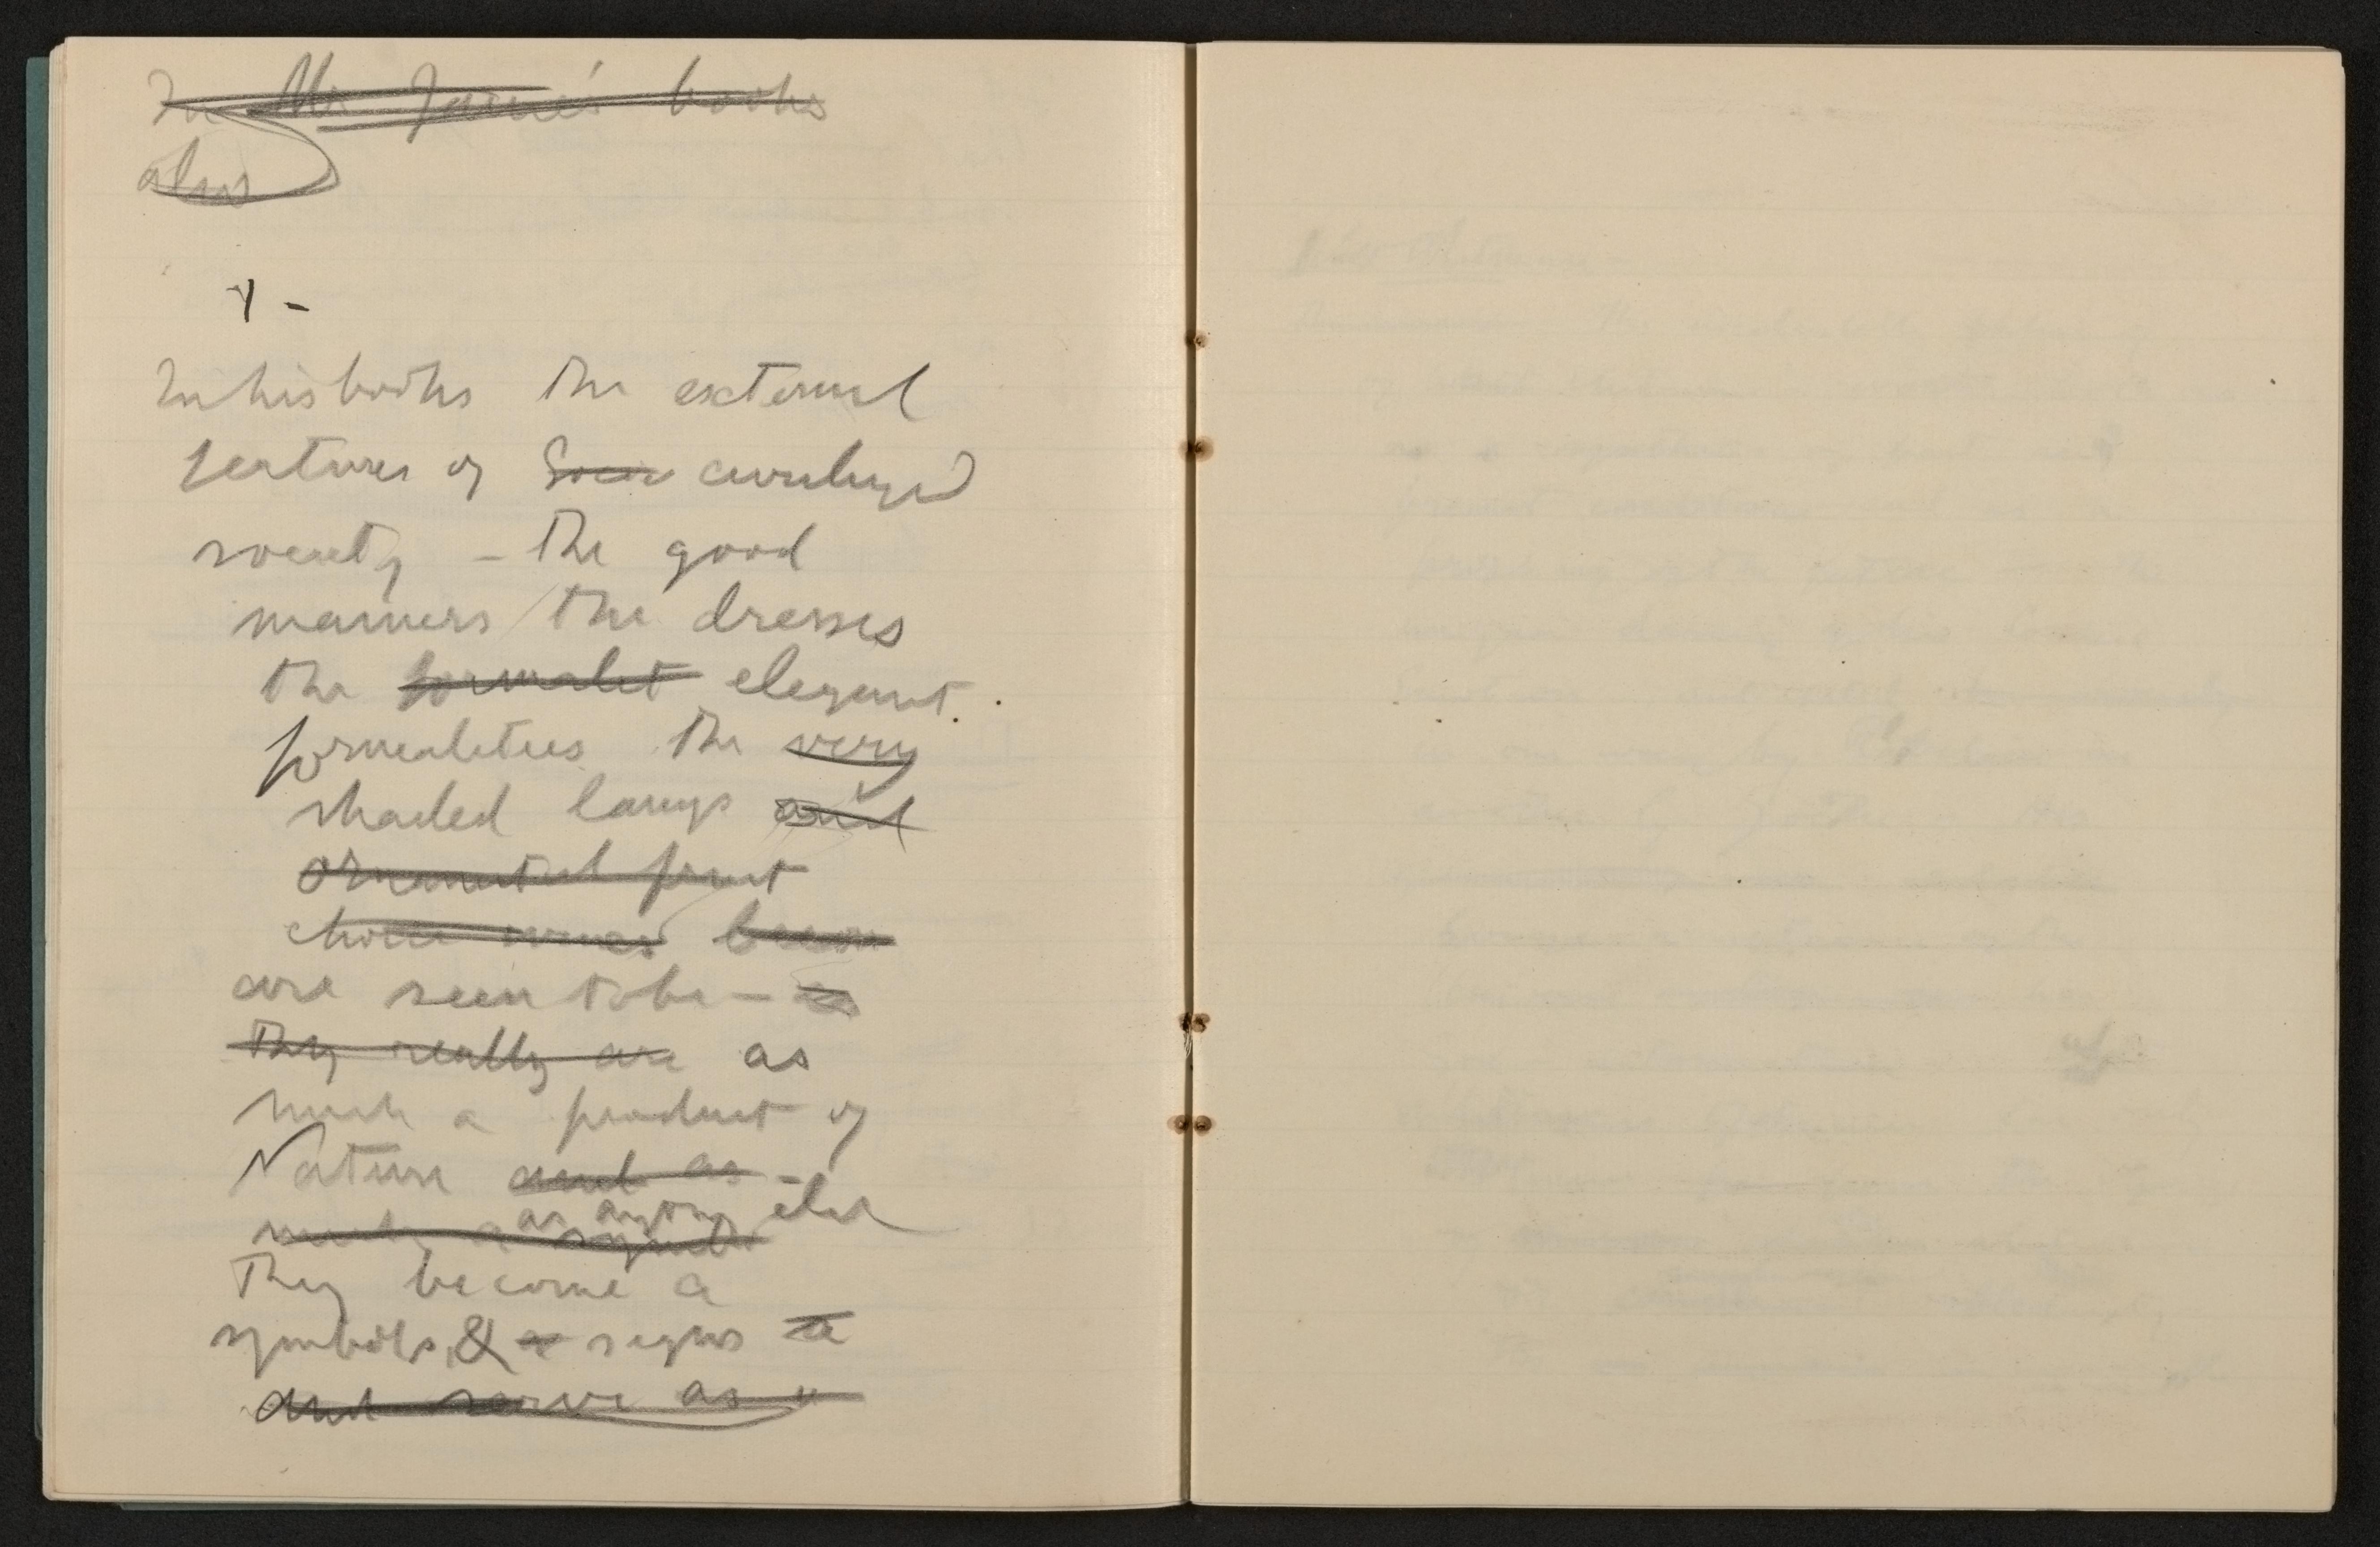 In Mr James' books
also
In his books the external
features of Soci civilized
society - the good
manners / the dresses
the formalit elegant
formalities the very
shaded lamps and
ornamental fruit
choice wines
are seen to be - as
they really are as
much a product of
Nature and as -
as anything else
much a symbol
They become a
symbols, & a signs
and serve as